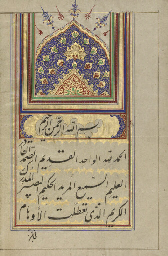 بسم الله الرحمن الرحیم
الحمد لله الواحد القدیم الصمد
العلیم السمیع المرید الحکیم البصیر
الکریم الذی تعطلت الاوهام